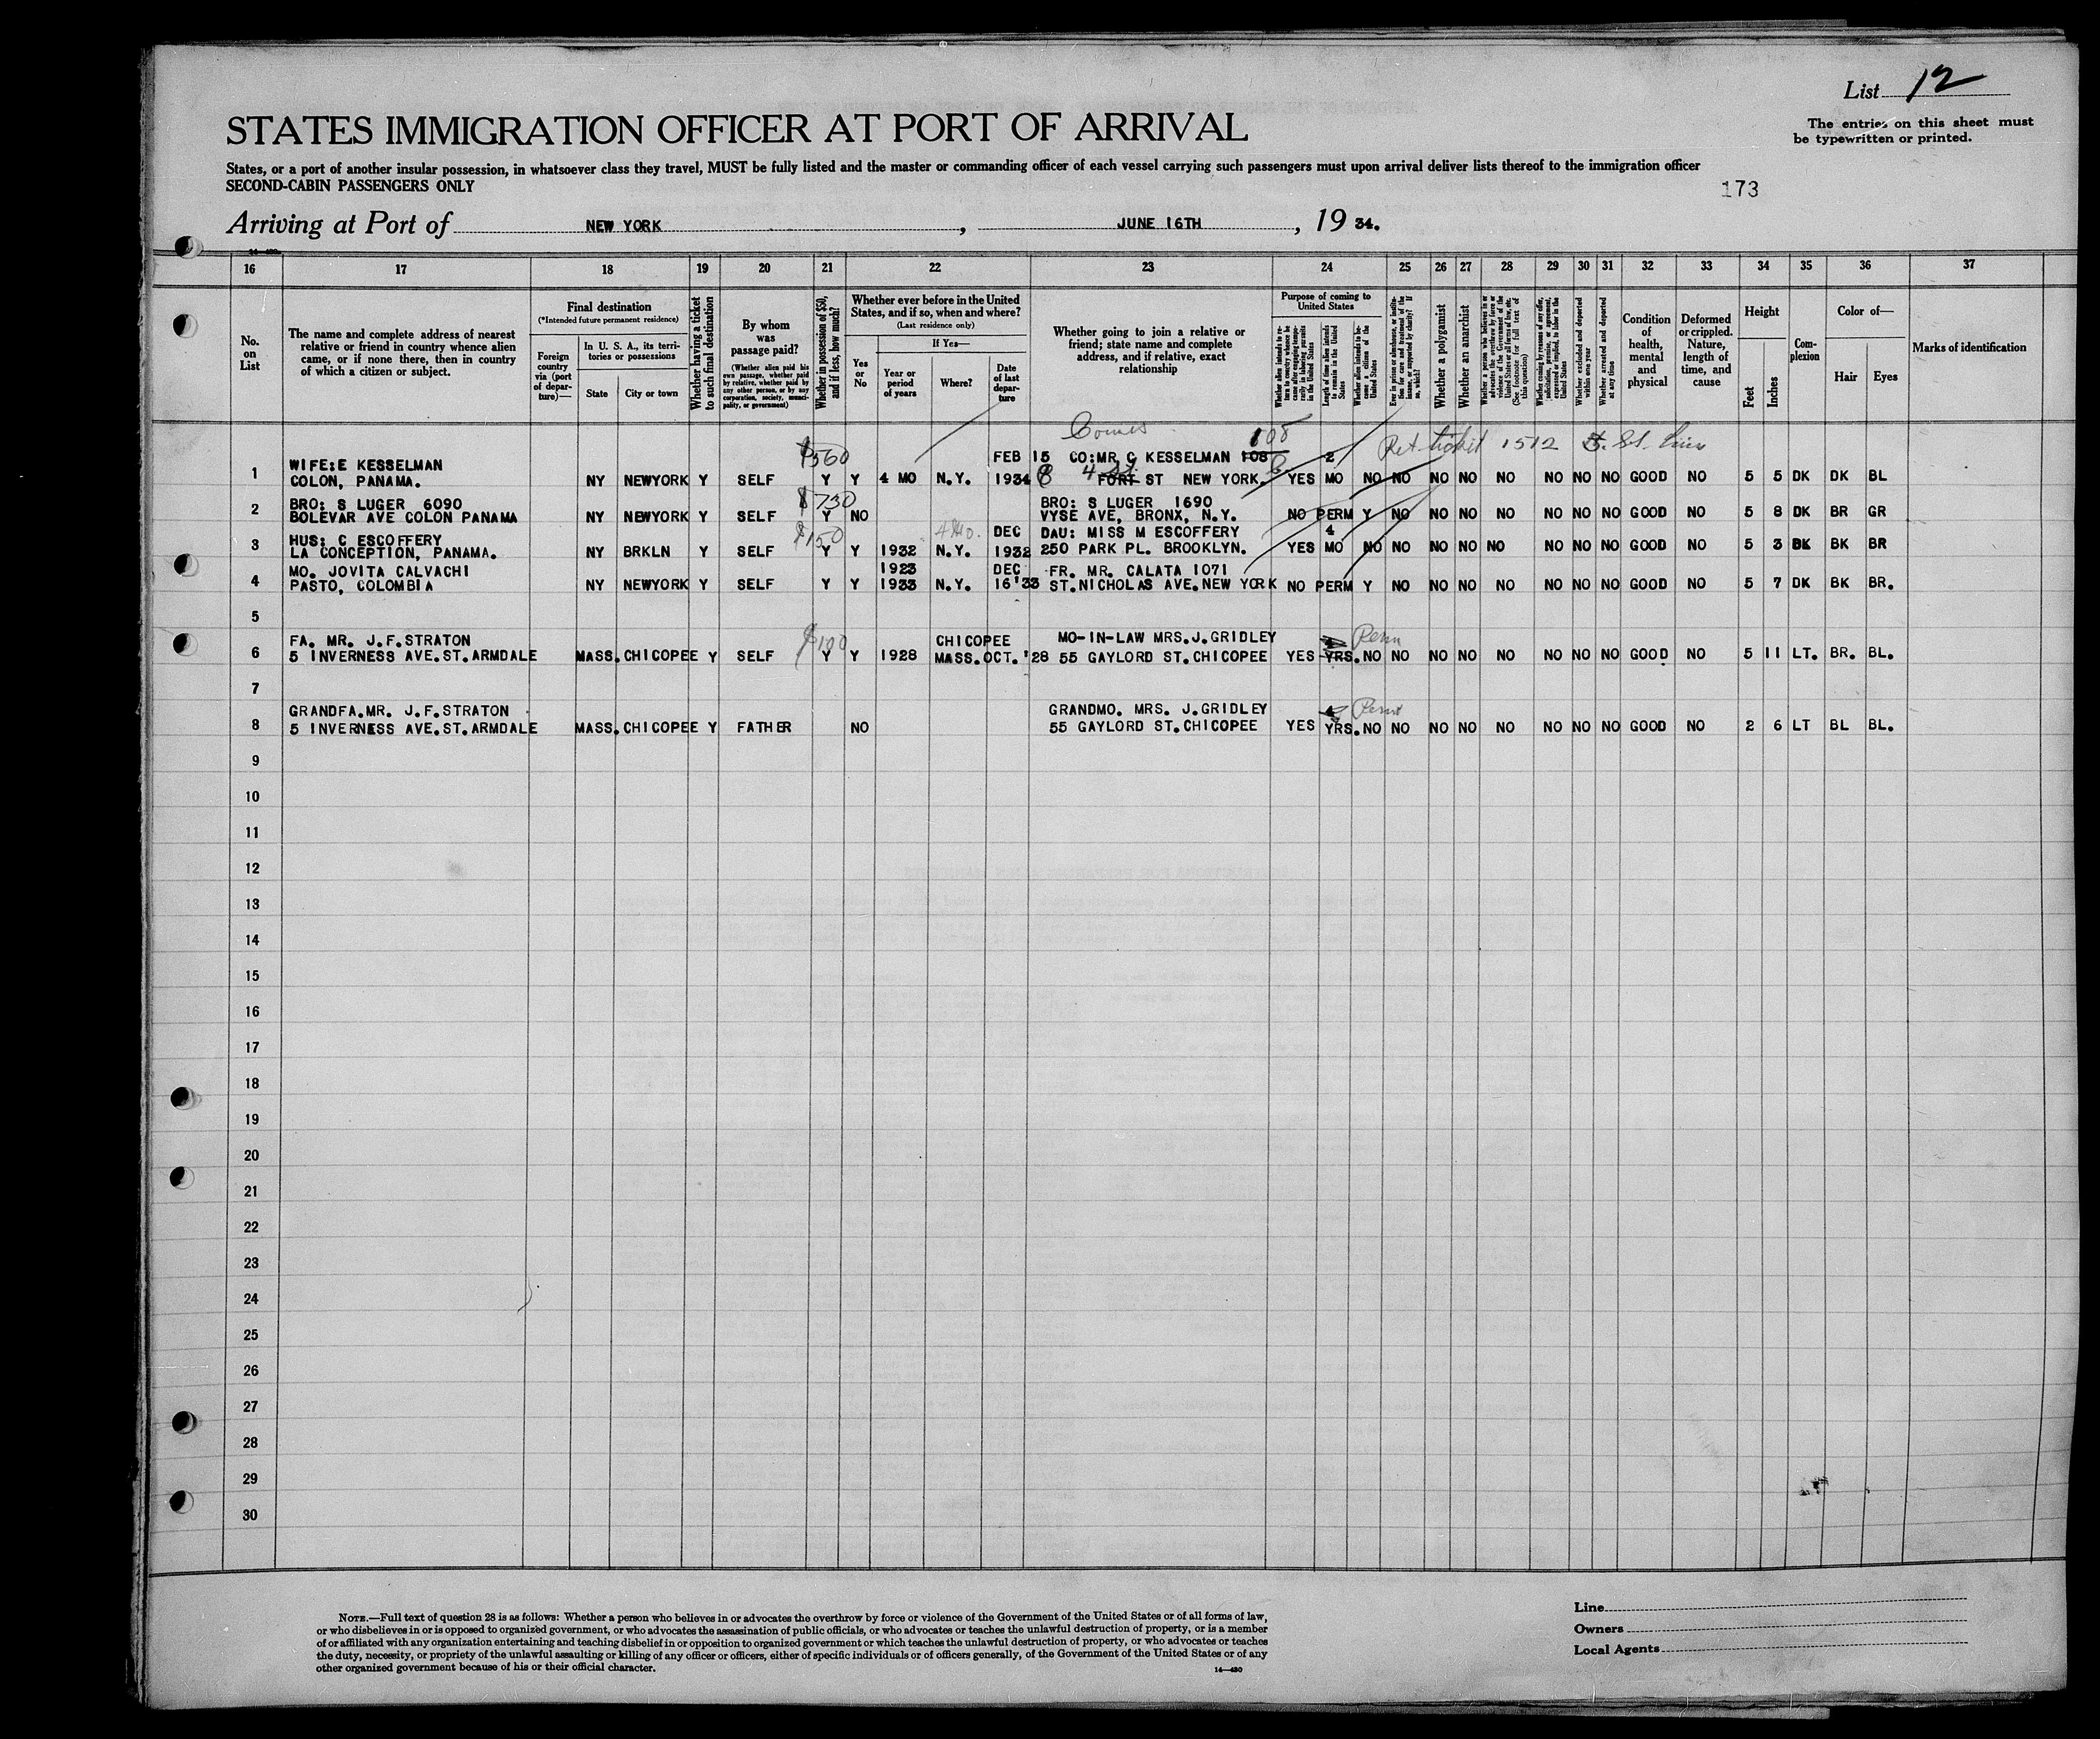 List 12
The entries on this sheet must
be typewritten or printed.
STATES IMMIGRATION OFFICER AT PORT OF ARRIVAL
States, or a port of another insular possession, in whatsoever class they travel, MUST be fully listed and the master or commanding officer of each vessel carrying such passengers must upon arrival deliver lists thereof to the immigration officer
SECOND-CABIN PASSENGERS ONLY
173
Arriving at Port of NEW YORK, JUNE 16TH, 19 34.
16 17 18 19 20 21 22 23 24 25 26 27 28 29 30 31 32 33 34 35 36 37
No.
on
List
The name and complete address of nearest
relative or friend in country whence alien
came, or if none there, then in country
of which a citizen or subject.
Final destination
(*Intended future permanent residence)
Foreign
country
via (port
of depar-
ture)—
In U. S. A., its terri-
tories or possessions
State
City or town
Whether having a ticket
to such final destination
By whom
was
passage paid?
(Whether alien paid his
own passage, whether paid
by relative, whether paid by
any other person, or by any
corporation, society, munici-
pality, or government)
Whether in possession of $50,
and if less, how much?
Whether ever before in the United
States, and if so, when and where?
(Last residence only)
Yes
or
No
If Yes—
Year or
period
of years
Where?
Date
of last
depar-
ture
Whether going to join a relative or
friend; state name and complete
address, and if relative, exact
relationship
Purpose of coming to
United States
Length of time alien intends
to remain in the United
States
Whether alien intends to be-
come a citizen of the
United States
Whether a polygamist
Whether an anarchist
Whether excluded and deported
within one year
Whether arrested and deported
at any time
Condition
of
health,
mental
and
physical
Deformed
or crippled.
Nature,
length of
time, and
cause
Height
Feet
Inches
Com-
plexion
Color of—
Hair
Eyes
Marks of identification
Ret ticket 1512
$560 108
WIFE:E KESSELMAN FEB 15 CO:MR C KESSELMAN 108 2
1 COLON, PANAMA. NY NEWYORK Y SELF Y Y 4 MO N.Y. 1934 FORT ST NEW YORK. YES MO NO NO NO NO NO NO NO NO GOOD NO 5 5 DK DK BL
BRO: S LUGER 6090 $730 BRO: S LUGER 1690
2 BOLEVAR AVE COLON PANAMA NY NEWYORK Y SELF Y NO VYSE AVE, BRONX, N.Y. NO PERM Y NO NO NO NO NO NO NO GOOD NO 5 8 DK BR GR
HUS: C ESCOFFERY $150 DEC DAU: MISS M ESCOFFERY 4
3 LA CONCEPTION, PANAMA. NY BRKLN Y SELF Y Y 1932 N.Y. 1932 250 PARK PL. BROOKLYN. YES MO NO NO NO NO NO NO NO NO GOOD NO 5 3 DK BK BR
MO. JOVITA CALVACHI 1923 DEC FR. MR. CALATA 1071
4 PASTO, COLOMBIA NY NEWYORK Y SELF Y Y 1933 N.Y. 16'33 ST.NICHOLAS AVE.NEW YORK NO PERM Y NO NO NO NO NO NO NO GOOD NO 5 7 DK BK BR.
5
FA. MR. J.F.STRATON $100 CHICOPEE MO-IN-LAW MRS.J.GRIDLEY
6 5 INVERNESS AVE.ST.ARMDALE MASS.CHICOPEE Y SELF Y Y 1928 MASS.OCT.'28 55 GAYLORD ST.CHICOPEE YES YRS.NO NO NO NO NO NO NO NO GOOD NO 5 11 LT. BR. BL.
7
GRANDFA.MR. J.F.STRATON GRANDMO. MRS. J.GRIDLEY
8 5 INVERNESS AVE.ST.ARMDALE MASS.CHICOPEE Y FATHER NO 55 GAYLORD ST.CHICOPEE YES YRS.NO NO NO NO NO NO NO NO GOOD NO 2 6 LT BL BL.
9
10
11
12
13
14
15
16
17
18
19
20
21
22
23
24
25
26
27
28
29
30
NOTE.—Full text of question 28 is as follows: Whether a person who believes in or advocates the overthrow by force or violence of the Government of the United States or of all forms of law,
or who disbelieves in or is opposed to organized government, or who advocates the assassination of public officials, or who advocates or teaches the unlawful destruction of property, or is a member
of or affiliated with any organization entertaining and teaching disbelief in or opposition to organized government or which teaches the unlawful destruction of property, or who advocates or teaches
the duty, necessity, or propriety of the unlawful assaulting or killing of any officer or officers, either of specific individuals or of officers generally, of the Government of the United States or of any
other organized government because of his or their official character.
14—430
Line
Owners
Local Agents